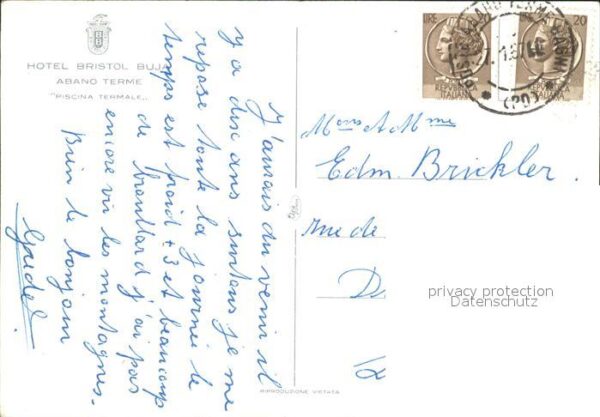 HOTEL BRISTOL BUJA
ABANO TERME
"PISCINA TERMALE"
J'aurais du venir il
y a dix ans surtout je me
repose toute la journée le
temps est froid + 3 et beaucoup
de brouillard j'ai pas
encore vu les montagnes.
Bien le bonjour
LIRE
20
REPUBBLICA ITALIANA
ABANO TERME
(PD)
Mons et Mme
Edm. Brickler.
rue de
D
privacy protection
Datenschutz
RIPRODUZIONE VIETATA